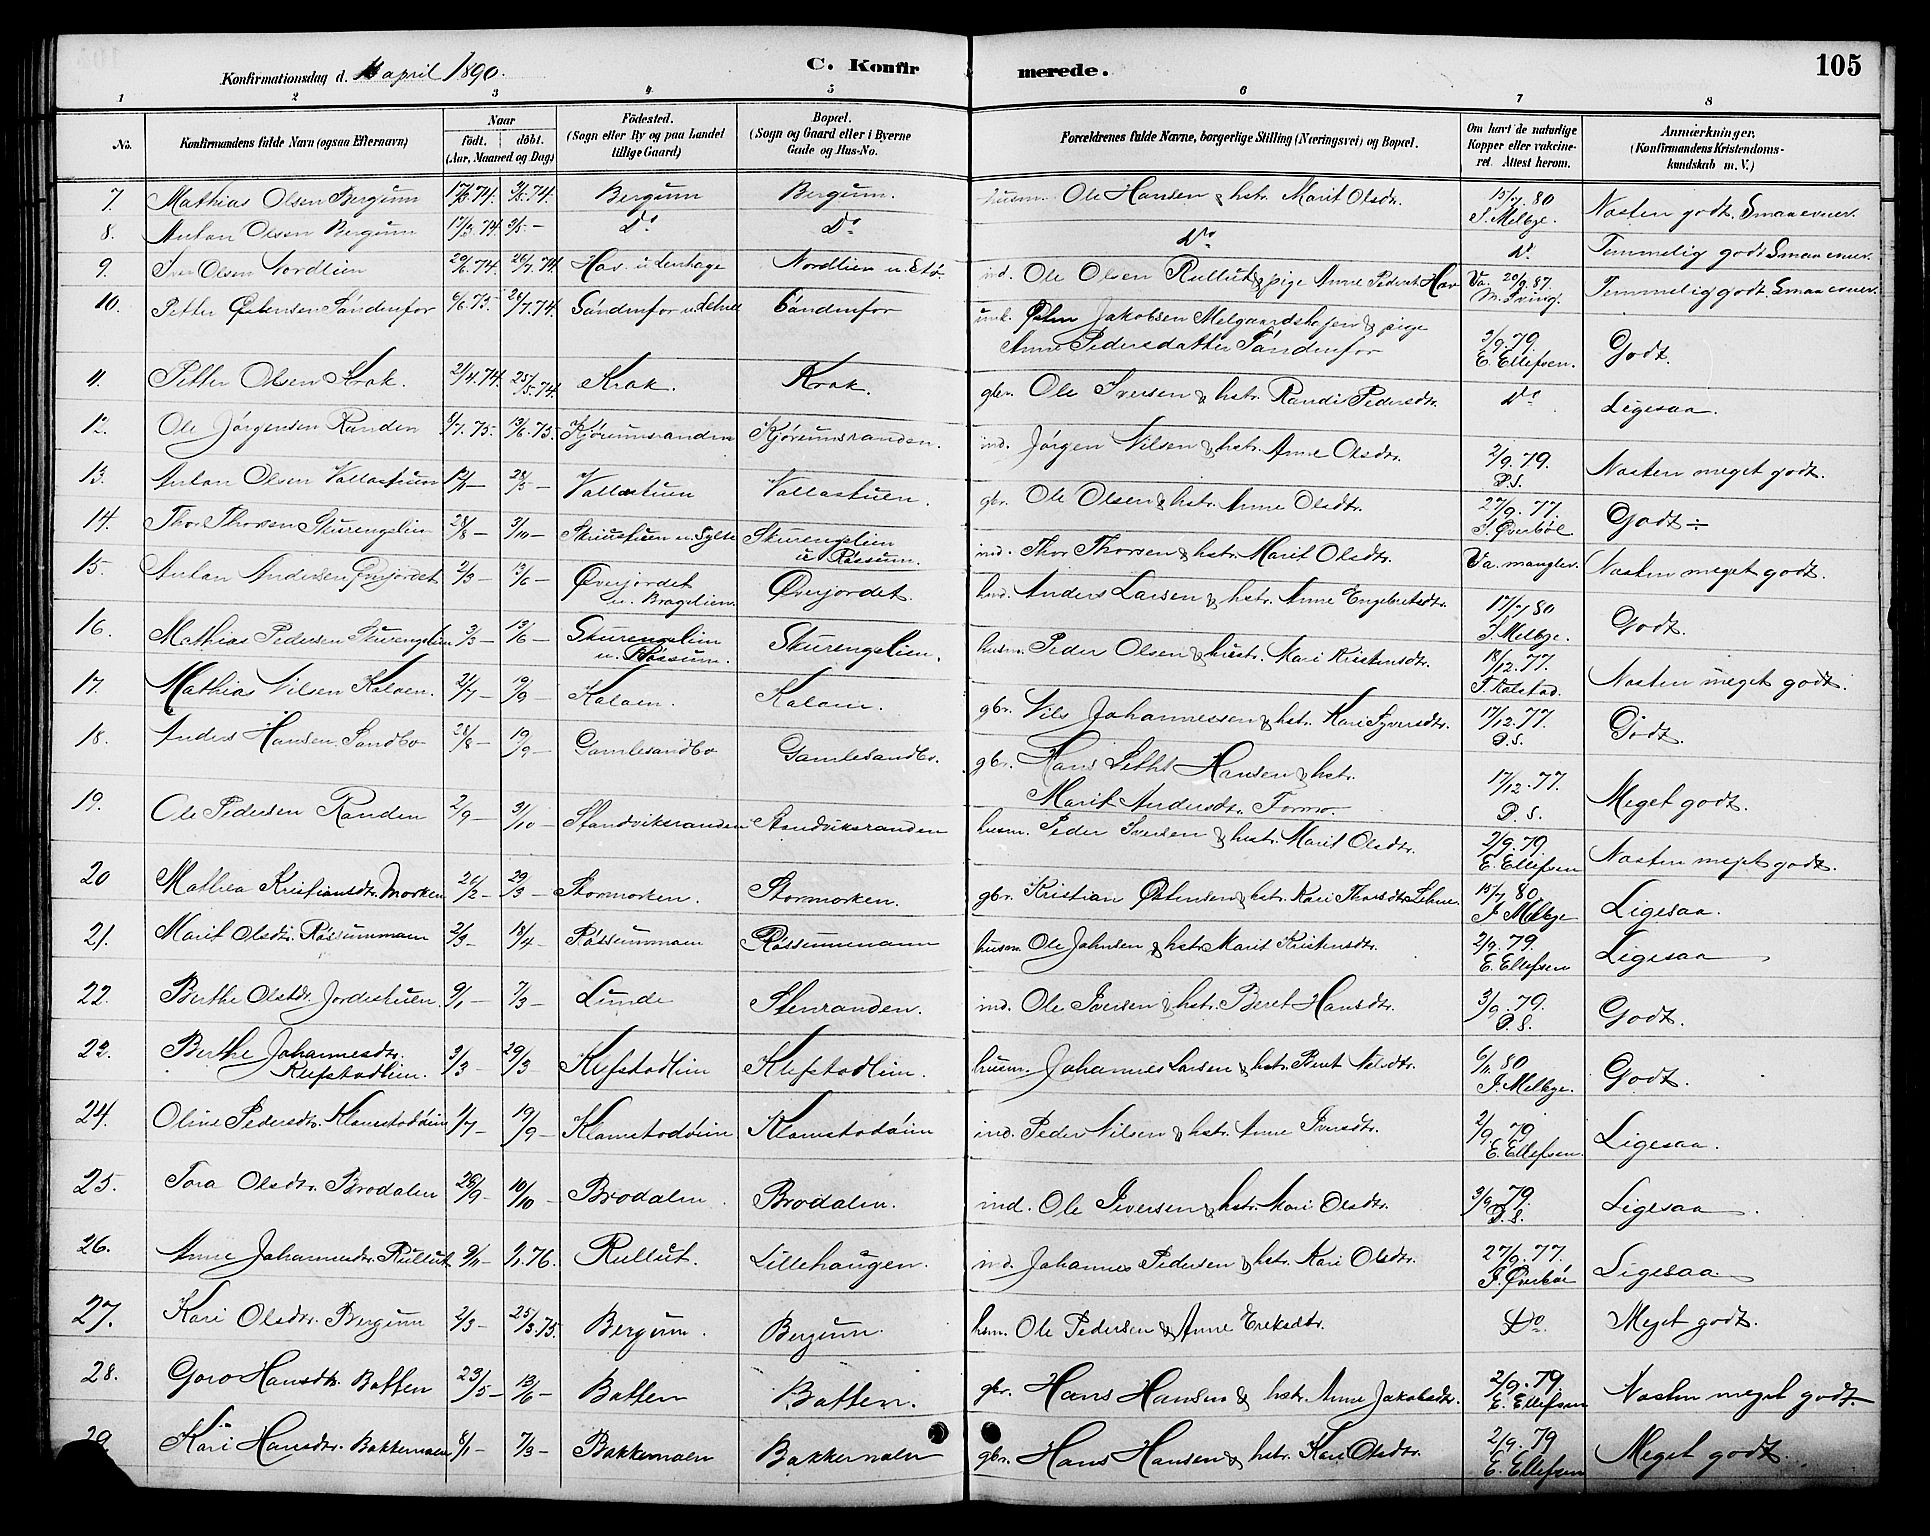 105
Konfirmationsdag d. april 1890.
C. Konfirmerede.
1 2 3 4 5 6 7 8
No. Konfirmandens fulde Navn (ogsaa Efternavn) Naar født. døbt. (Aar, Maaned og Dag) Fødested. (Sogn eller By og paa Landet tillige Gaard) Bopæl. (Sogn og Gaard eller i Byerne Gade og Hus-No. Forældrenes fulde Navne, borgerlige Stilling (Næringsvei) og Bopæl. Om havt de naturlige Kopper eller vakcineret. Attest herom. Anmærkninger. (Konfirmandens Kristendomskundskab m. V.)
7. Mathias Olsen Bergum 17/3.74. 3/5.74. Bergum Bergum. husm. Ole Hansen & hstr. Marit Olsdtr. 15/7 80 J. Melbye. Næsten godt. Smaa evner.
8. Anton Olsen Bergum 17/3.74. 3/5 — Do Do Do Do Temmelig godt Smaa evner.
9. Iver Olsen Nordlien 29/6.74. 26/7.74. Hov u. Lenhage Nordlien u. Stø. ind. Ole Olsen Rullut & pige Anne Pedersdt. Hov Va. 20/9.87. Temmelig godt. Smaa evner.
10. Petter Østensen Søndenfor 6/6.75. 26/7.74. Søndenfor Søndenfor unk. Østen Jakobsen Melgaardshagen & pige
Anne Pedersdatter Søndenfor 2/9.79. E. Ellefsen. Godt.
11. Petter Olsen Krok. 21/4.74. 25/5.74. Krok. Krok. gbr. Ole Iversen & hstr. Randi Pedersdtr. Do Ligesaa.
12. Ole Jørgensen Randen 8/7.75. 13/6.75. Kjørumsranden Kjørumsranden. ind. Jørgen Nilsen & hstr. Anne Olsdtr. 2/9.79. P.S. Næsten meget godt.
13. Anton Olsen Vollastuen 28/3 — Vollastuen Vollastuen. gbr. Ole Olsen & hstr. Anne Olsdtr. 27/9.77. J. Øverbøe Godt ÷
14. Thor Thorsen Skurengslien 28/8 — 3/10 — Skriustuen u. Sylte Skurengslien
u. Røssum. ind. Thor Thorsen & hstr. Marit Olsdtr. Va. mangler. Næsten meget godt.
15. Anton Andersen Øverjordet 2/3 — 13/6 — Øverjordet
u. Bragelien. Øverjordet. Anders Larsen & hstr. Anne Engebretsdtr. 17/7 80 J. Melbye. Godt.
16. Mathias Pedersen Skurengslien 3/3 — 13/6 — Skurengslien
u. Røssum. Skurengslien. husm. Peder Olsen & hustr. Mari Kristensdtr. 18/12.77. T. Kolstad. Næsten meget godt.
17. Mathias Nilsen Koloen. 21/7 — 19/9 — Koloen. Koloen. gbr. Nils Johannessen & hstr. Kari Syversdtr. 17/12.77. P.S. Godt.
18. Anders Hansen Sandbo 28/8 — 19/9 — Gamlesandbo Gamlesandbo. gbr. Hans Hansen & hstr.
Marit Andersdtr. Formo. 17/12.77. P.S. Meget godt.
19. Ole Pedersen Randen 2/9 — 31/10 — Standviksranden Standviksranden husm. Peder Iversen & hstr. Marit Olsdtr. 2/9.79. E. Ellefsen Næsten meget godt.
20 Mathea Kristiansdtr. Morken 20/2 — 29/3 — Stormorken. Stormorken. gbr. Kristian Østensen & hstr. Kari Thorsdtr. 15/7 80. J. Melbye Ligesaa.
21. Marit Olsdtr. Røssummoen 2/3 — 18/4 — Røssummoen Røssummoen husm. Ole Johnsen & hstr. Marit Kristensdtr. 2/9.79. E. Ellefsen Ligesaa
22. Berthe Olsdtr. Jordestuen. 9/1 — 7/3 — Lunde Stenranden. ind. Ole Iversen & hstr. Beret Hansdtr. 3/9.79. P.S. Godt.
22. Berthe Johannesdtr.
Klefstadlien. 3/3 — 29/3 — Klefstadlien Klefstadlien. husm. Johannes Larsen & hstr. Beret Nilsdtr. 6/11 80 J. Melbye. Godt.
24. Oline Pedersdtr. Klomstadøien 1/7 — 19/9 — Klomstadøien Klomstadøien ind. Peder Nilsen & hstr. Anne Iversdtr. 2/9 79 E. Ellefsen. Ligesaa.
25. Tora Olsdtr. Brodalen 26/9 — 10/10 — Brodalen. Brodalen. ind. Ole Iversen & hstr. Mari Olsdtr. 3/9 79. P.S. Ligesaa.
26. Anne Johannesdtr. Rullut 9/11 — 1/1.76. Rullut. Lillehaugen. ind. Johannes Pedersen & hstr. Kari Olsdtr. 27/9.77. J. Øverbøe Ligesaa
27. Kari Olsdtr. Bergum 2/3 — 25/3.75. Bergum. Bergum. hsm. Ole Pedersen & Anne Eriksdtr. Do. Meget godt.
28. Goro Hansdtr. Botten 23/5 — 13/6 — Botten Botten. gbr. Hans Hansen & hstr. Anne Jakobsdtr. 2/9.79 E. Ellefsen Næsten meget godt.
29 Kari Hansdtr. Bakkemoen 8/1 — 7/3 — Bakkemoen Bakkemoen gbr. Hans Hansen & hstr. Kari Olsdtr. 2/9.79 E. Ellefsen Meget godt.